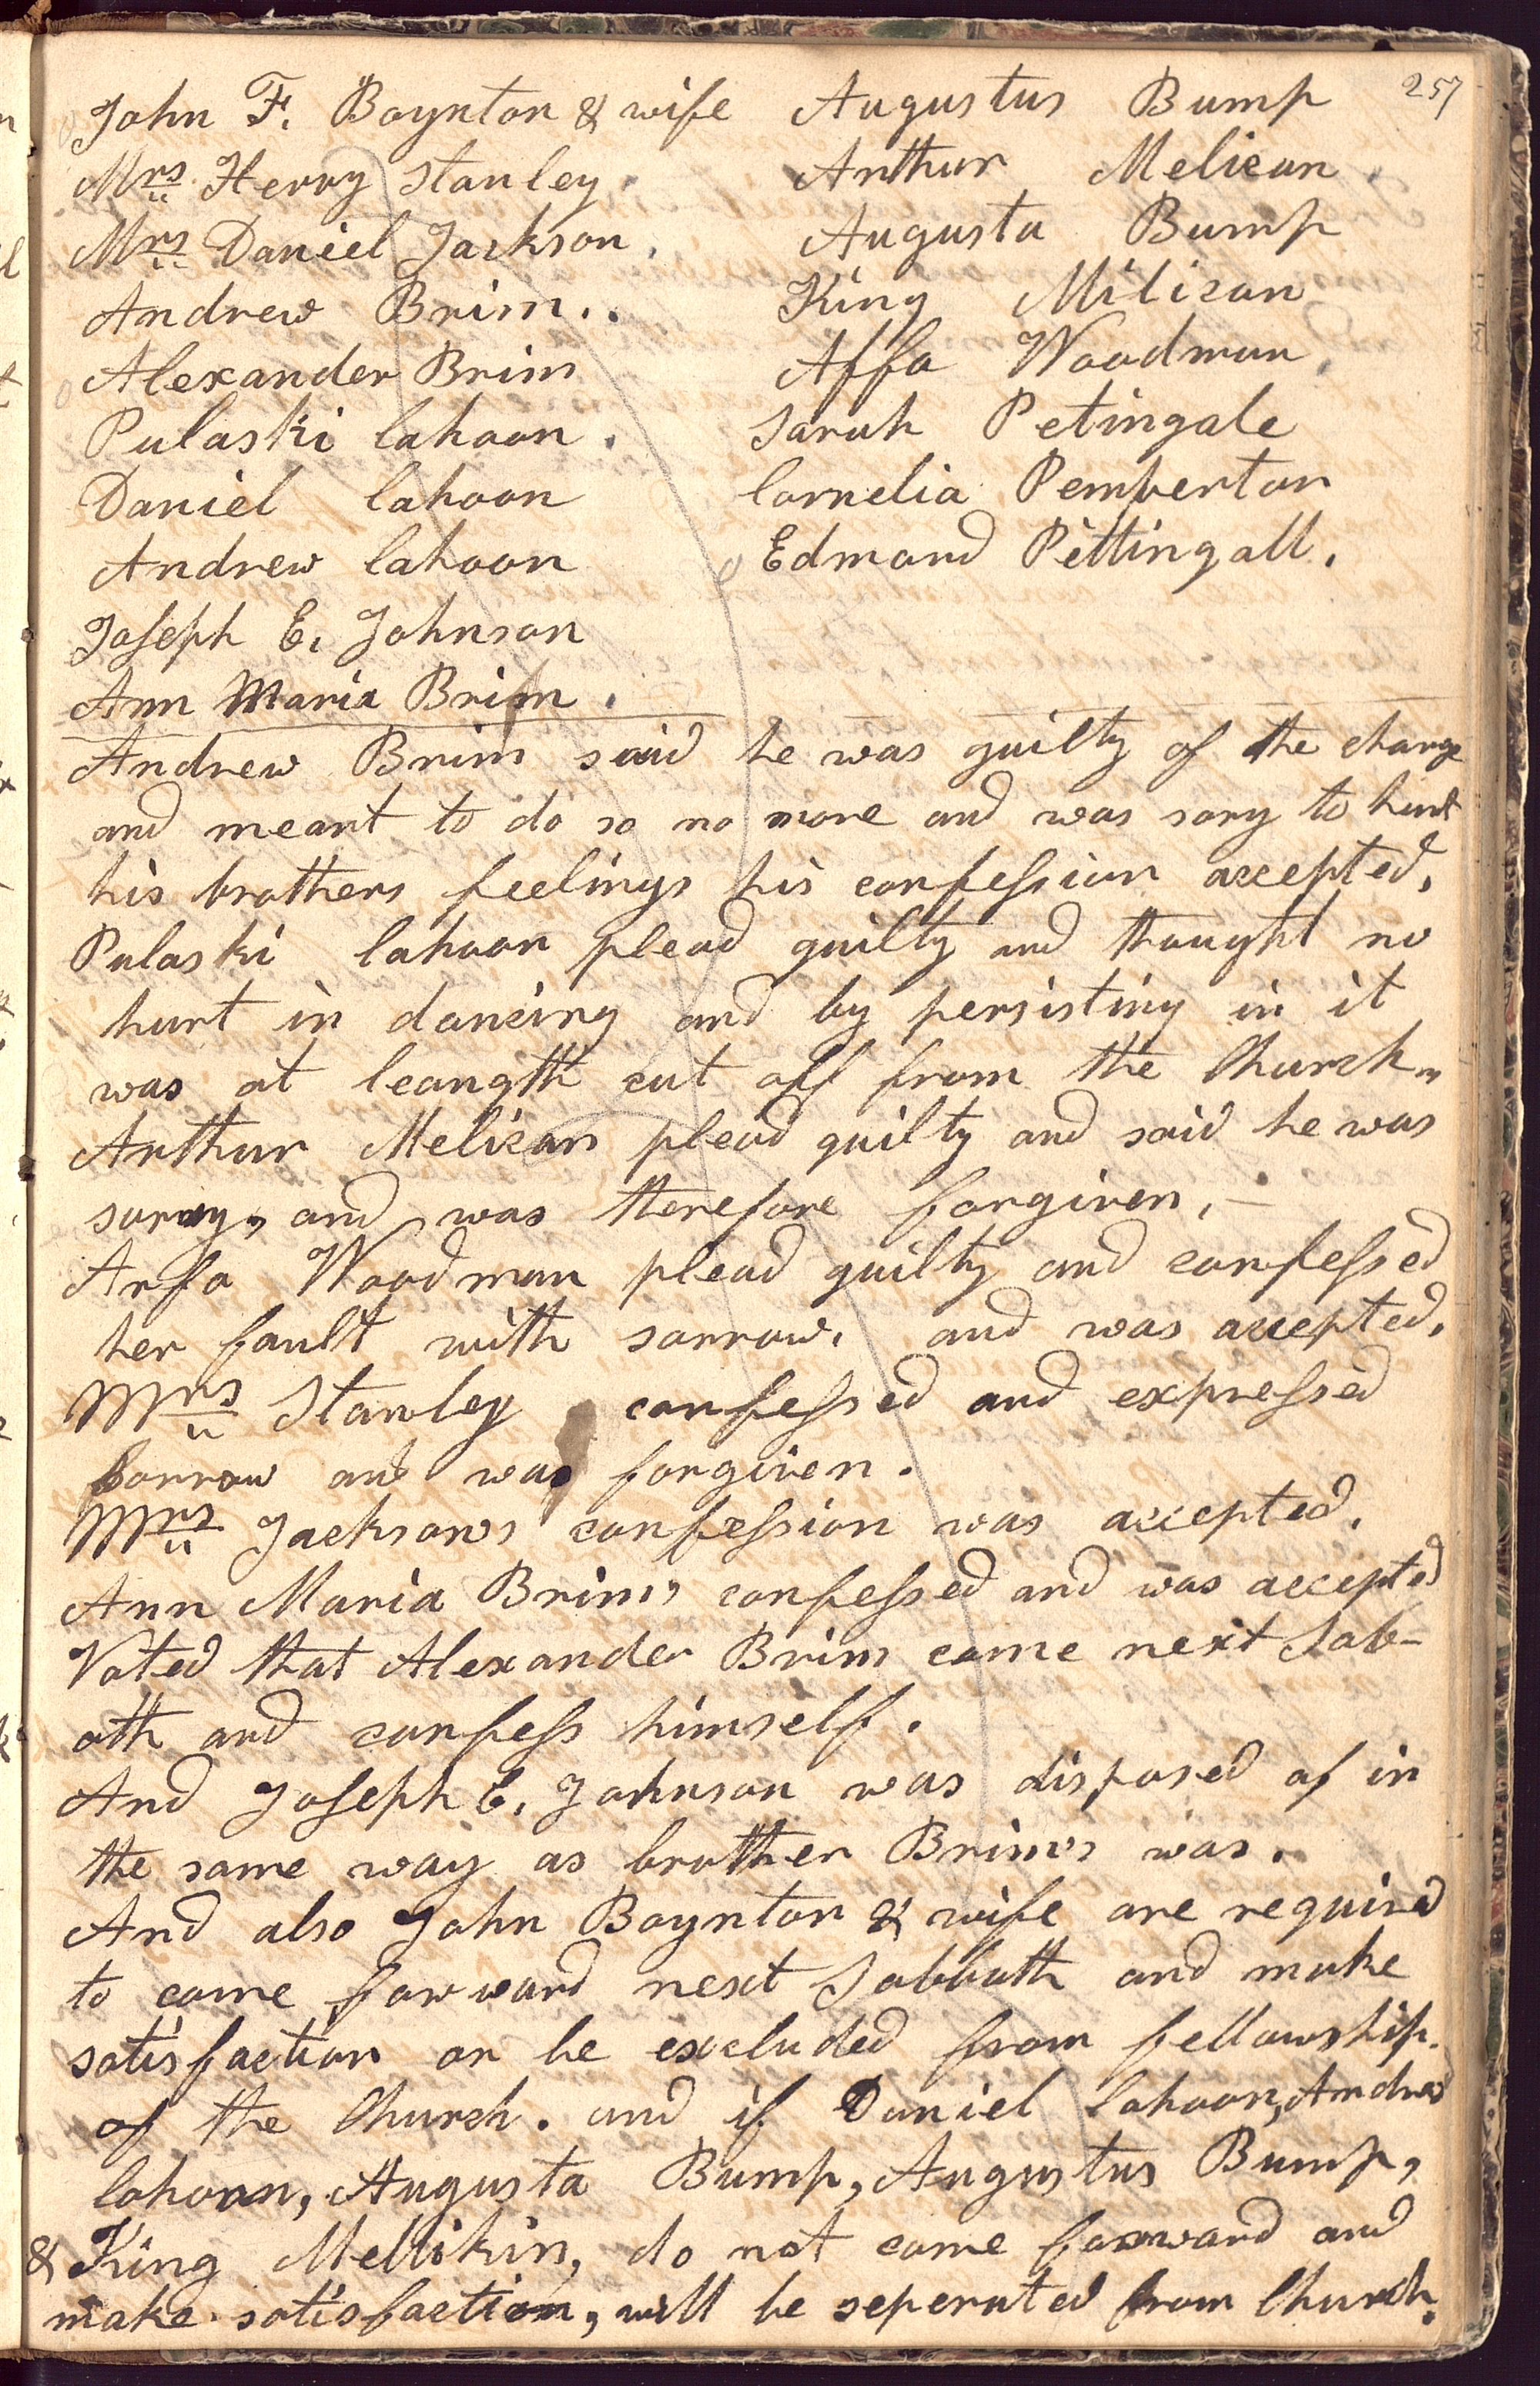 257
John F. Boynton & wife
Mrs Henry Stanley.
Mrs Daniel Jackson.
Andrew Brim..
Alexander Brim
Pulaski Cahoon.
Daniel Cahoon
Andrew Cahoon
Joseph E. Johnson
Ann Maria Brim.
Augustus Bump
Arthur Melican.
Augusta Bump
King Milican
Affa Woodman.
Sarah Petingale
Cornelia Pemberton
Edmond Pettingall.
Andrew Brim said he was guilty of the charge
and meant to do so no more and was sory to hurt
his brothers feelings his confession accepted.
Pulaski Cahoon plead guilty and thought no
hurt in dancing and by persisting in it
was at leangth cut off from the Church.,
Arthur Melican plead guilty and said he was
sorroy, and was therefore forgiven. —
Arfa Woodman plead guilty and confessed
her fault with sorrow. and was accepted.
Mrs Stanley confessed and expressed
sorrow and was forgiven.
Mrs Jackson's confession was accepted.
Ann Maria Brim, confessed and was accepted
Voted that Alexander Brim come next Sab-
oth and confess himself.
And Joseph E. Johnson was disposed of in
the same way as brother Brim's was.
And also John Boynton & wife are required
to come forward next Sabbath and make
satisfaction or be excluded from fellowship.
of the Church. and if Daniel Cahoon, Andrew
Cahoon, Augusta Bump, Augustus Bump,
& King Mellikin, do not come forward and
make satisfaction, will be seperated from Church.